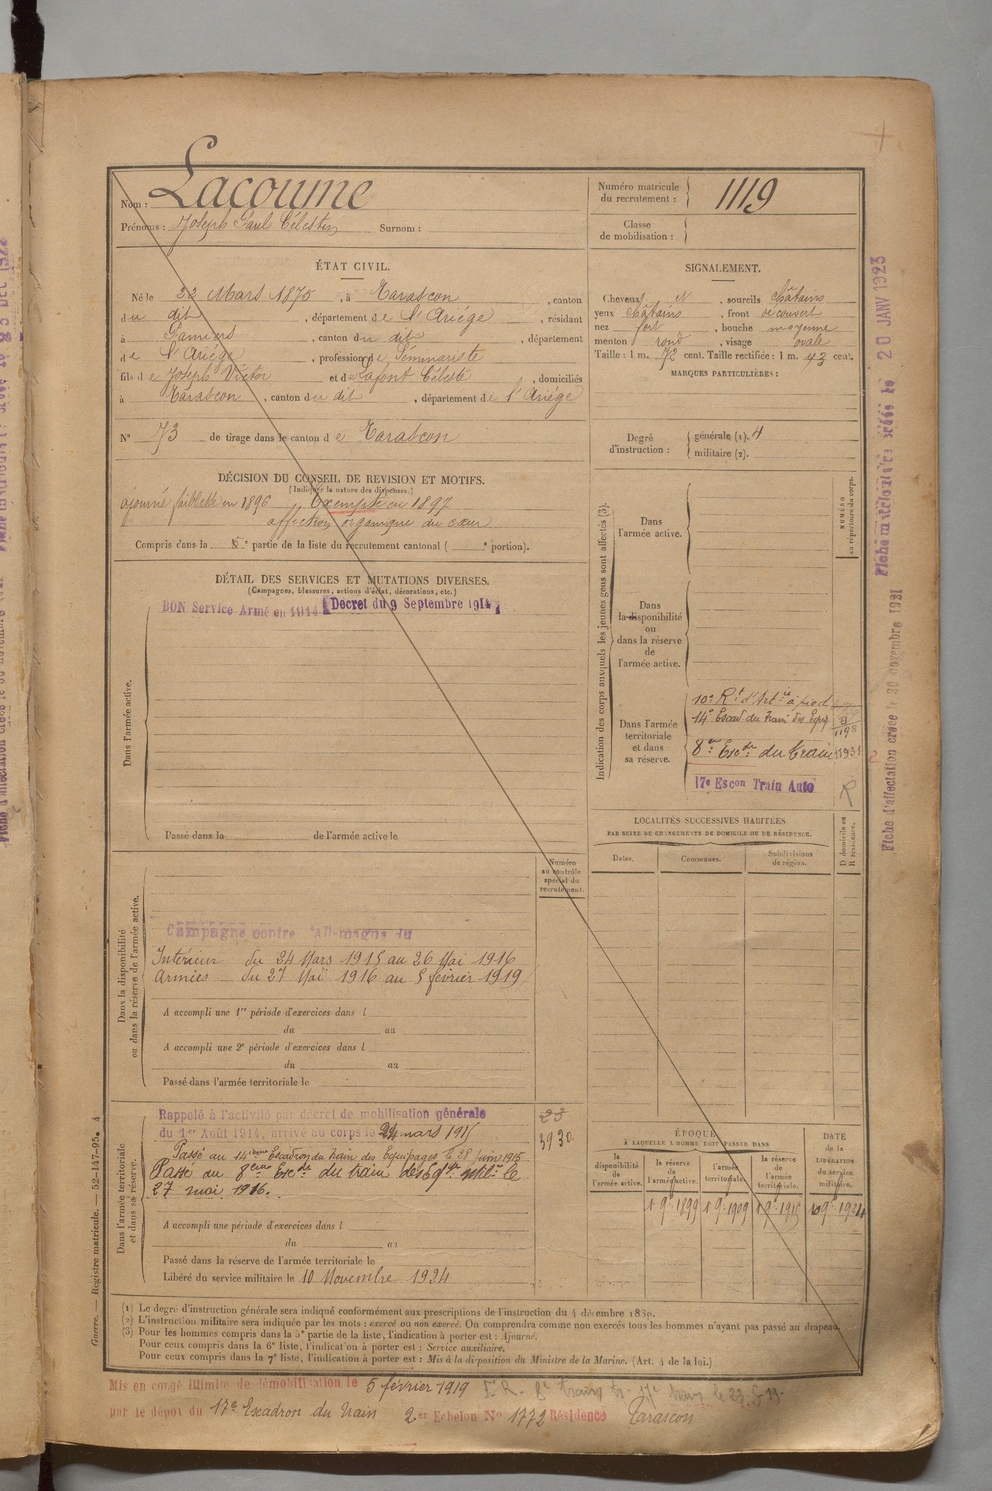 Nom : Lacoume
Prénoms : Joseph Paul Célestin Surnom :
Numéro matricule du recrutement : 1119
Classe de mobilisation :
ÉTAT CIVIL.
Né le 22 Mars 1875, à Tarascon, canton
du dit, département de l'Ariège, résidant
à Pamiers, canton du dit, département
de l'Ariège, profession de Séminariste
fils de Joseph Victor et de Lafont Céleste, domiciliés
à Tarascon, canton du dit, département de l'Ariège
N° 73 de tirage dans le canton de Tarascon
SIGNALEMENT.
Cheveux et sourcils châtains
yeux châtains, front découvert
nez fort, bouche moyenne
menton rond, visage ovale
Taille : 1 m. 72 cent. Taille rectifiée : 1 m. 43 cent.
MARQUES PARTICULIÈRES :
Degré d'instruction : générale (1). 4
militaire (2).
DÉCISION DU CONSEIL DE REVISION ET MOTIFS.
(Indiquer la nature des dispenses.)
ajourné faiblesse en 1896 Exempté en 1897
affection organique du cœur
Compris dans la 5e partie de la liste du recrutement cantonal ( e portion).
DÉTAIL DES SERVICES ET MUTATIONS DIVERSES.
(Campagnes, blessures, actions d'éclat, décorations, etc.)
BON Service Armé en 1914 Décret du 9 Septembre 1914
Dans l'armée active.
Passé dans la de l'armée active le
Indication des corps auxquels les jeunes gens sont affectés (3).
NUMÉRO au répertoire du corps.
Dans l'armée active.
Dans la disponibilité ou dans la réserve de l'armée active.
Dans l'armée territoriale et dans sa réserve.
10e Rt d'Artie à pied
14e Escad du Train des Eqpes
8e Escon du Train
17e Escon Train Auto
R
LOCALITÉS SUCCESSIVES HABITÉES
PAR SUITE DE CHANGEMENTS DE DOMICILE OU DE RÉSIDENCE.
Dates. Communes. Subdivisions de région. D domicile ou R résidence.
Dans la disponibilité ou dans la réserve de l'armée active.
Numéro au contrôle spécial du recrutement.
Campagne contre l'Allemagne du
Intérieur du 24 Mars 1915 au 26 Mai 1916
Armées du 27 Mai 1916 au 5 février 1919
A accompli une 1re période d'exercices dans l
du au
A accompli une 2e période d'exercices dans l
du au
Passé dans l'armée territoriale le
Dans l'armée territoriale et dans sa réserve.
Rappelé à l'activité par décret de mobilisation générale
du 1er Août 1914, arrivé au corps le 24 mars 1915
3930
Passé au 14ème Escadron du train des Equipages le 28 Juin 1915
Passé au 8ème Escon du train des Eqges milit. le
27 mai 1916.
A accompli une période d'exercices dans l
du au
Passé dans la réserve de l'armée territoriale le
Libéré du service militaire le 10 Novembre 1924
ÉPOQUE
À LAQUELLE L'HOMME DOIT PASSER DANS
la disponibilité de l'armée active. la réserve de l'armée active. l'armée territoriale. la réserve de l'armée territoriale. DATE de la LIBÉRATION du service militaire.
1 9re 1899 1 9re 1909 1 9re 1915 10 9re 1924
(1) Le degré d'instruction générale sera indiqué conformément aux prescriptions de l'instruction du 4 décembre 1889.
(2) L'instruction militaire sera indiquée par les mots : exercé ou non exercé. On comprendra comme non exercés tous les hommes n'ayant pas passé au drapeau.
(3) Pour les hommes compris dans la 5e partie de la liste, l'indication à porter est : Ajourné.
Pour ceux compris dans la 6e liste, l'indication à porter est : Service auxiliaire.
Pour ceux compris dans la 7e liste, l'indication à porter est : Mis à la disposition du Ministre de la Marine. (Art. 4 de la loi.)
Mis en congé illimité de démobilisation le 5 février 1919
par le dépôt du 17e Escadron du Train 2er Echelon N° 1772 Résidence Tarascon
Guerre. — Registre matricule. — 52-147-95. 4
Fiche matriculaire créée le 20 JANV 1923
Fiche d'affectation créée le 30 novembre 1921